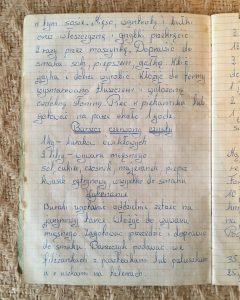 w tym sosie. Mięso, wątrobę i bułki
oraz włoszczyznę i grzyby przekręcić
2 razy przez maszynkę. Doprawić do
smaku solą, pieprzem, gałką. Wbić
jajka i dobrze wyrobić. Włożyć do formy
wysmarowanej tłuszczem i wyłożonej
słoniny. Piec w piekarniku lub
gotować na parze około 1 godz.
Barszcz czerwony czysty
1 kg buraków ćwikłowych
3 litry wywaru mięsnego
sól, cukier, czosnek, majeranek, pieprz
kwasek cytrynowy wszystko do smaku
Wykonanie
Buraki wyszorować oddzielnie zetrzeć na
jarzynowej tarce włożyć do wywaru
mięsnego. Zagotować przecedzić i doprawić
do smaku. Barszczyk podawać w
filiżankach z pasztecikami lub paluszkami
a z uszkami na talerzach.